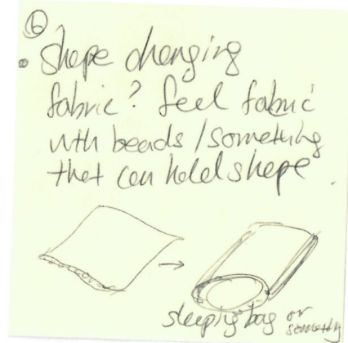 6
• Shape changing
fabric? feel fabric
with beads / something
that can hold shape.
sleeping bag or
something